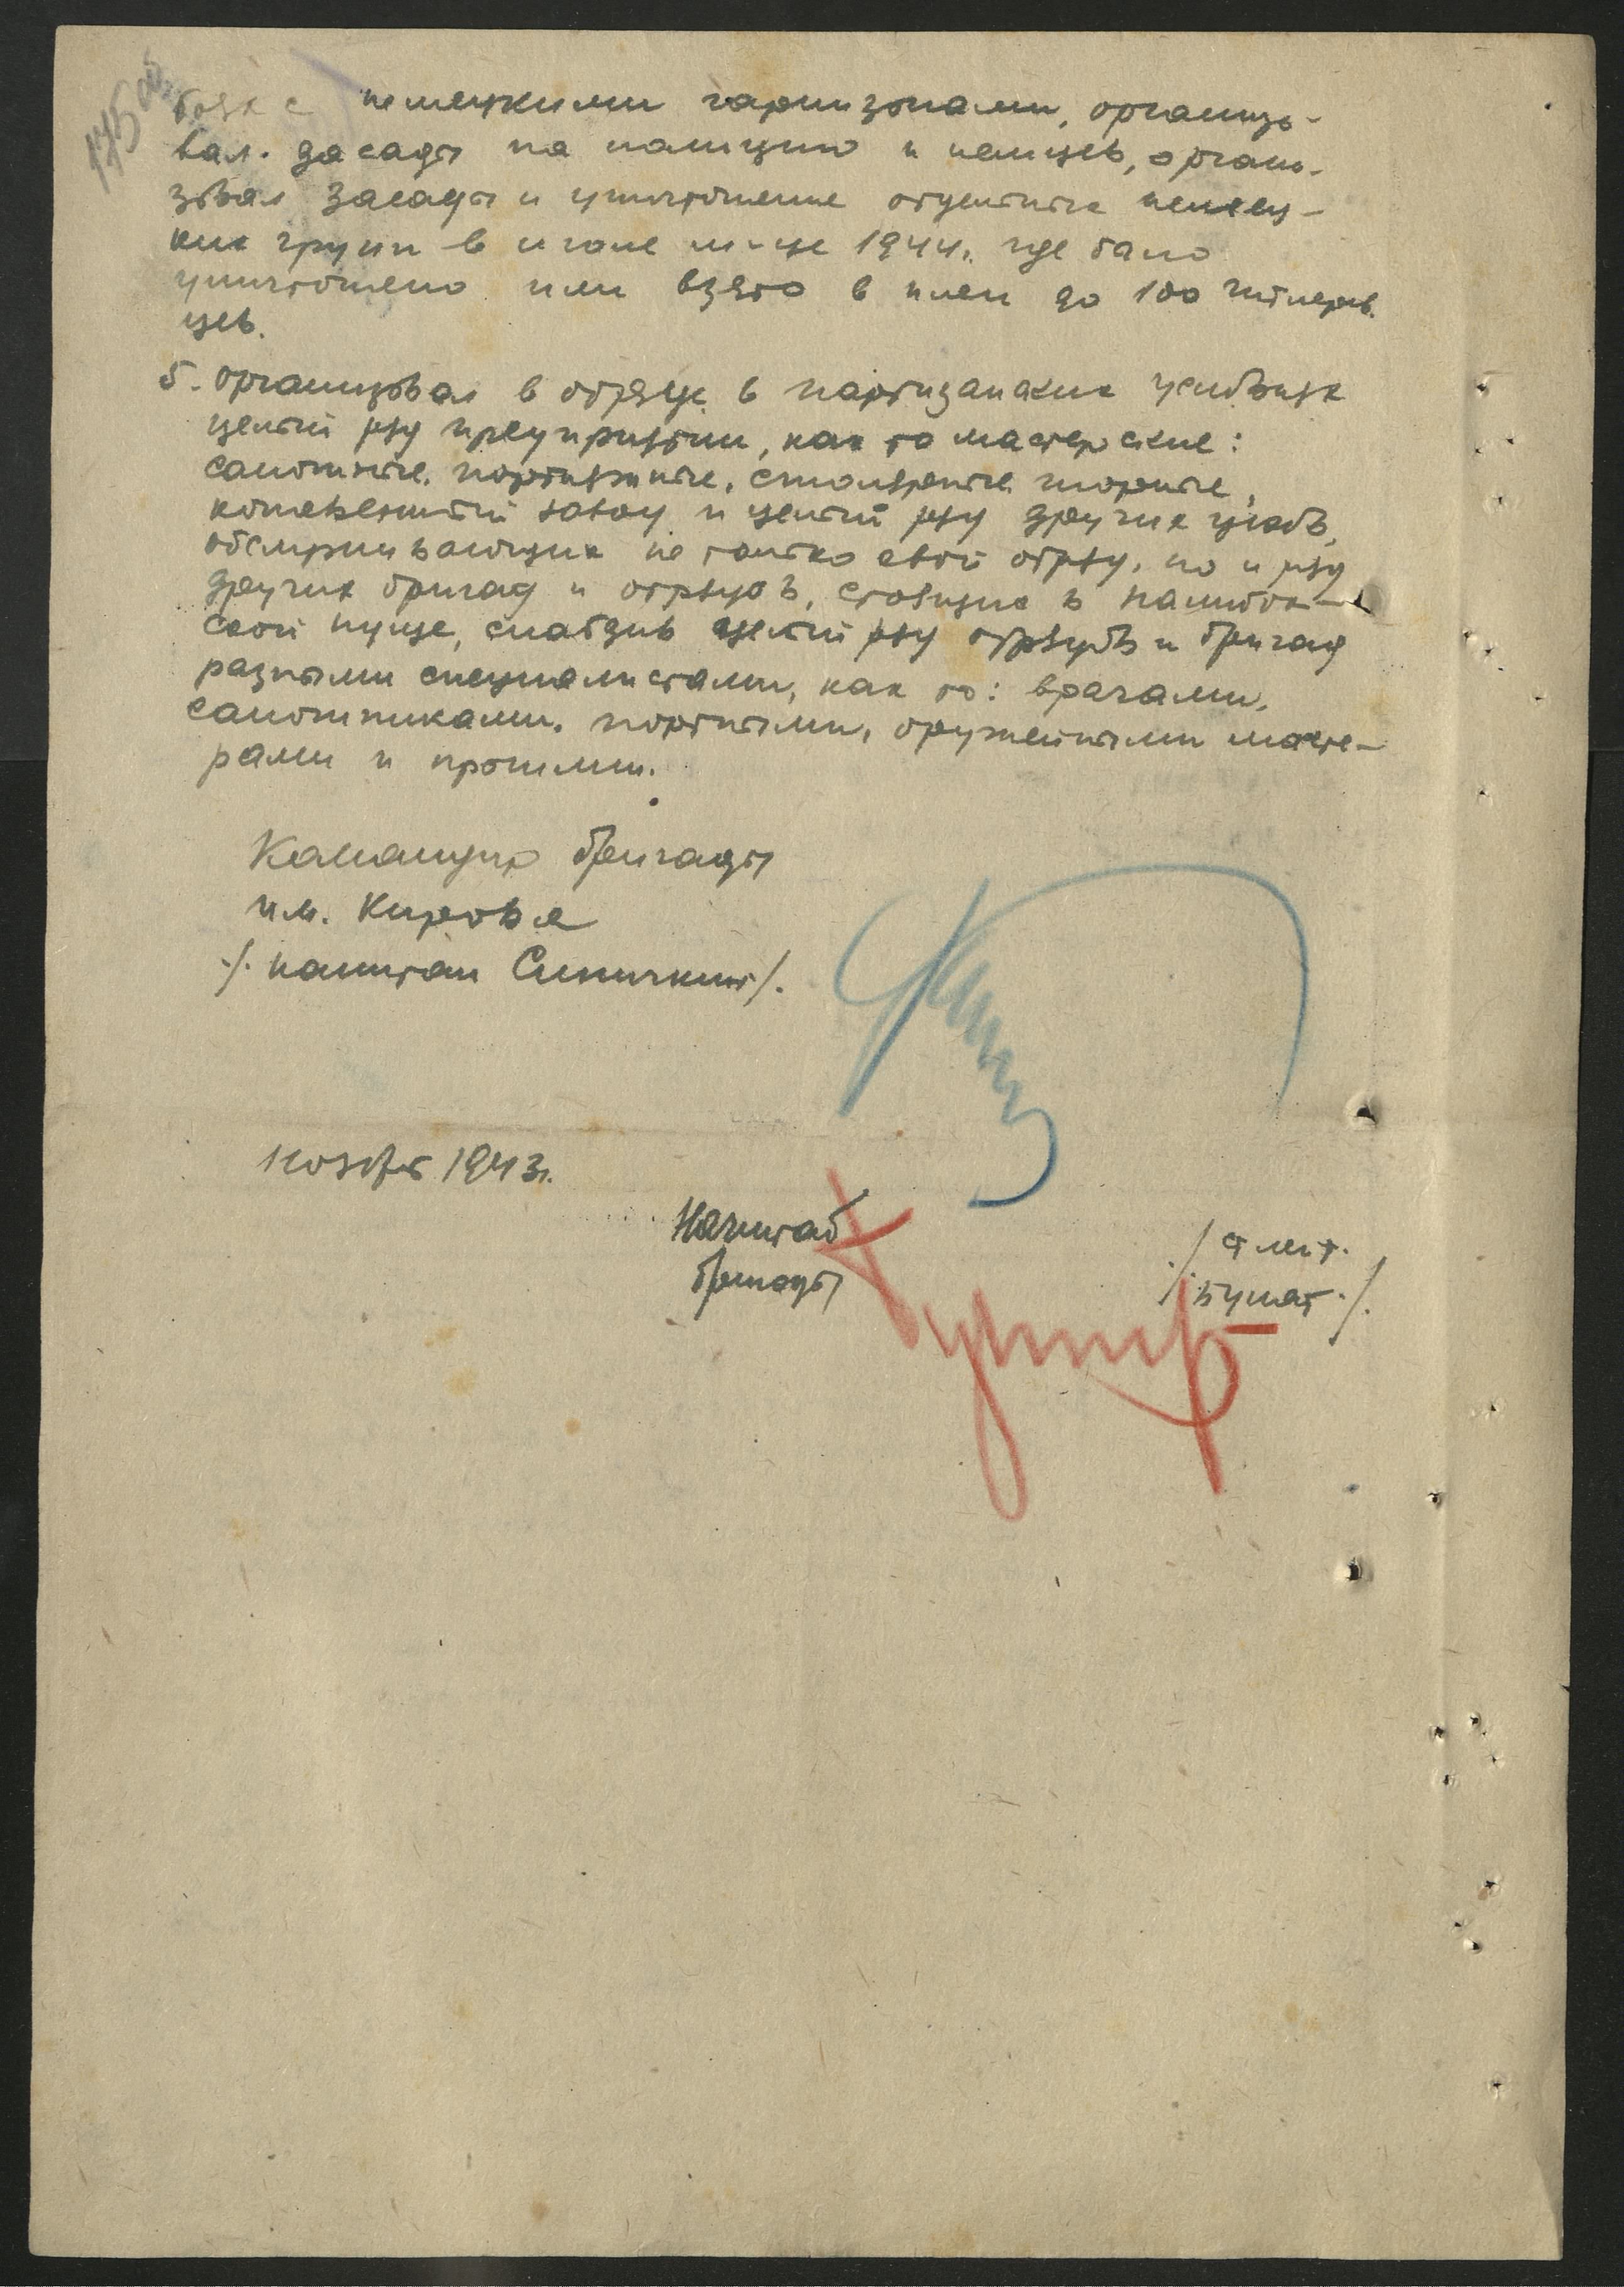 175 об
боях с немецкими гарнизонами, организо-
вал. засады на полицию и немцев, органи-
зовал засады и уничтожение отдельных немец-
ких групп в июле м-це 1944г. где было
уничтожено или взято в плен до 100 гитлеров.
цев.
5. организовал в отряде в партизанских условиях
целый ряд предприятий, как то мастерские:
сапожные, портняжные, столярные,
кожевенный завод и целый ряд других цехов,
обслуживающих не только свой отряд, но и ряд
других бригад и отрядов, стоящих в Налибок-
ской пуще, снабдив целый ряд отрядов и бригад
разными специалистами, как то: врачами,
сапожниками, портными, оружейными масте-
рами и прочими.
Командир бригады
им. Кирова
./. капитан Синичкин /.
1943г.
Начштаб
бригады
./ ст лей-т.
/.